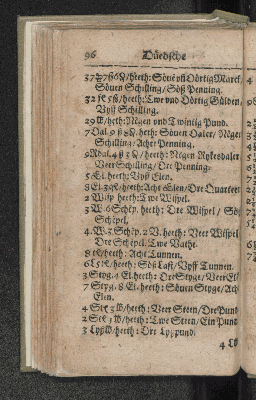 96 Düdsche
37 ß 6 /heeth: Söven un Dörtig Marck
Söven Schilling/ Söß Penning.
32 5 /heeth: Twe und Dörtig Gülden,
Vyff Schilling.
29 /heth: Negen und Twintig Pund.
7 Dal. 9 ß 8 /heth: Söven Daler/ Negen
Schilling/ Acht Penning.
9 Rdal. 4 ß 3 /heeth: Negen Rykesdaler
Veer Schilling/ Dre Penning.
5 El. heeth: Vyff Elen.
8 El. 3 /heeth: Acht Elen/ Dre Quarteer
2 Wisp heeth: Twe Wispel.
3 W. 6 Schep. heeth: Dre Wispel / Söß
Schepel.
4 W. 3 Schep. 2 V. heeth: Veer Wispel
Dre Schepel. Twe Vathe.
8 /heeth: Acht Tunnen.
6 L 5 /heeth: Söß Last/ Vyff Tunnen.
3 Styg. 4 El. heeth: Dre Styge/ Veer El
7 Styg. 8 El. heeth: Söven Styge/ Ach
Elen.
4 St 3 /heeth: Veer Steen/ Dre Pund
2 St 1 /heeth: Twe Steen/ Ein Pund
3 Lyß /heeth: Dre Lyspund.
4